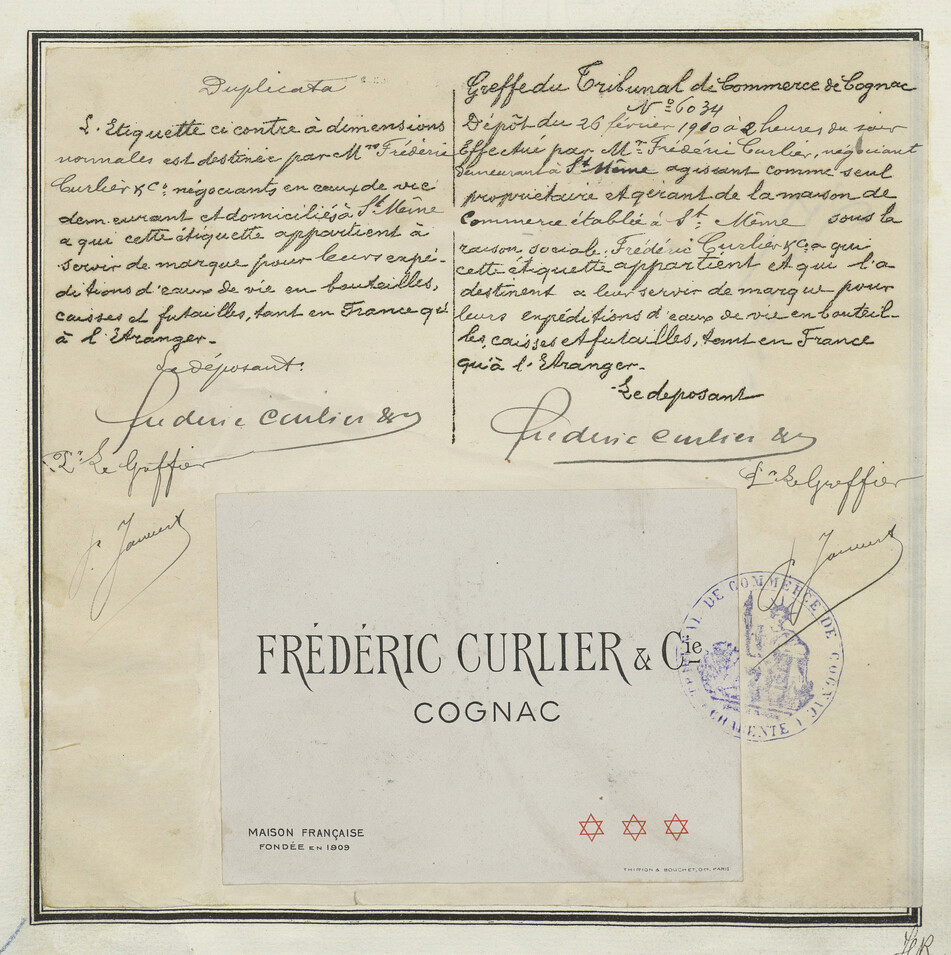 Duplicata
L'Etiquette ci contre à dimensions
normales est destinée par Mrs Frédéric
Curlier & Co. négociants en eaux de vie
demeurant et domiciliés à St Même
a qui cette étiquette appartient à
servir de marque pour leurs expé-
ditions d'eaux de vie en bouteilles,
caisses et futailles, tant en France qu'
à l'Etranger-
Le déposant.
Frédéric Curlier & Co
Pr Le Greffier
Greffe du Tribunal de Commerce de Cognac
No 6034
Dépôt du 26 février 1910 à 2 heures du soir
Effectué par Mr Frédéric Curlier, négociant
demeurant à St Même agissant comme seul
propriétaire et gérant de la maison de
Commerce établie à St Même sous la
raison sociale. Frédéric Curlier & Co a qui
cette étiquette appartient et qui l'a
destinent a leur servir de marque pour
leurs expéditions d'eaux de vie en bouteil-
les, caisses et futailles, tant en France
qu'à l'Etranger-
Le deposant
Frédéric Curlier & Co
Pr Le Greffier
TRIBUNAL DE COMMERCE DE COGNAC
(CHARENTE)
FRÉDÉRIC CURLIER & Cie
COGNAC
MAISON FRANÇAISE
FONDÉE EN 1909
THIRION & BOUCHET, GR. PARIS
HR